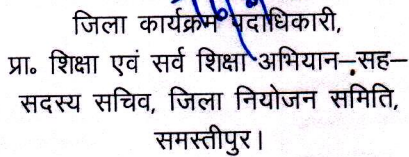 जिला कार्यक्रम पदाधिकारी,
प्रा० शिक्षा एवं सर्व शिक्षा अभियान–सह–
सदस्य सचिव, जिला नियोजन समिति,
समस्तीपुर।